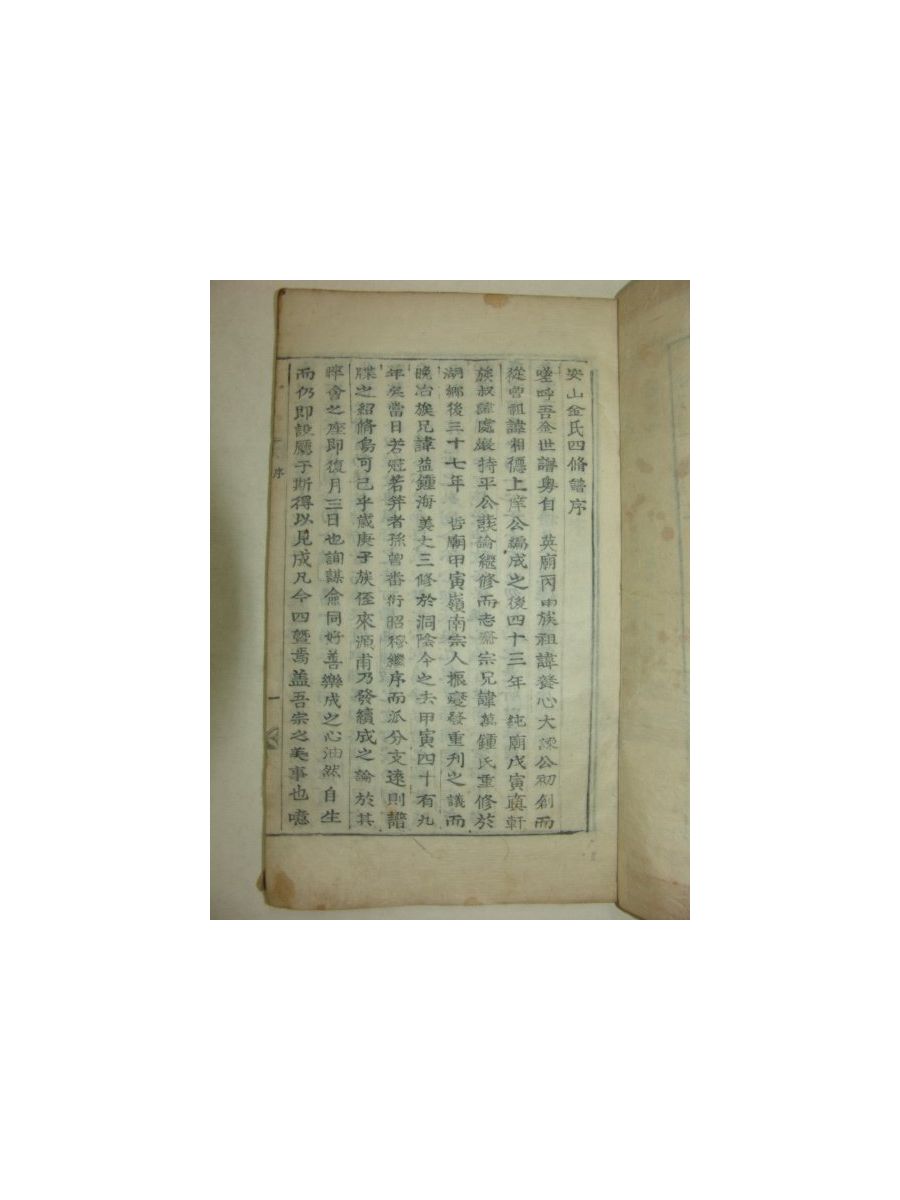 安山金氏四修譜序
嗟呼吾金世譜粤自 英廟丙申族祖諱養心大諫公刱創而
從曾祖諱相德上庠公編成之後四十三年 純廟戊寅軒
族叔諱處巖持平公議論繼修而志齋宗兄諱萬鍾氏重修於
湖鄉後三十七年 哲廟甲寅嶺南宗人振發重刊之議而
晩冶族兄諱益鍾海美丈三修於洞陰今之去甲寅四十有九
年矣當日若冠若笄者孫曾番衍昭穆繼序而派分支遠則譜
牒之紹脩烏可已乎歲庚子族侄來源甫乃發續成之論於其
晬會之座即復月三日也詢謀僉同好善樂成之心油然自生
而仍即設廳于斯得以見成凡今四曁焉盖吾宗之美事也噫
序
一